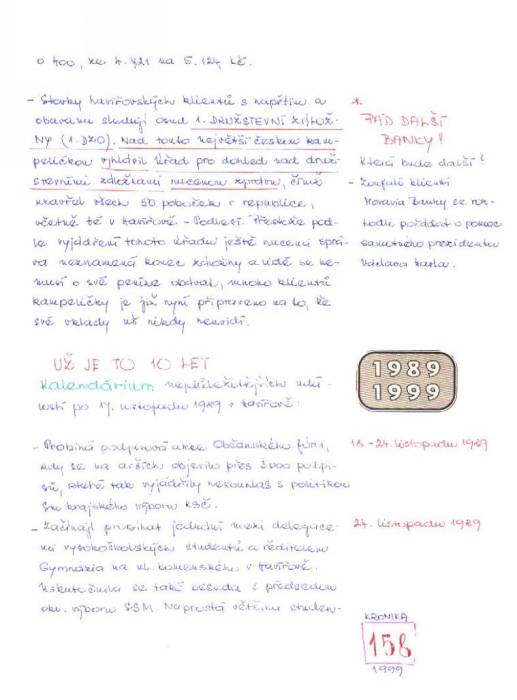 o 400, ze 4.721 na 5.124 Kč.
- Stovky havířovských klientů s napětím a
obavami sledují osud 1. DRUŽSTEVNÍ ZÁLOŽ-
NY (1. DZO). Nad touto největší českou kam-
peličkou vyhlásil Úřad pro dohled nad druž-
stevními záložnami nucenou správu, čímž
uzavřel všech 50 poboček v republice,
včetně té v Havířově - Podlesí. Přestože pod-
le vyjádření tohoto úřadu ještě nucená sprá-
va neznamená konec záložny a lidé se ne-
musí o své peníze obávat, mnoho klientů
kampeličky je již nyní připraveno na to, že
své vklady už nikdy neuvidí.
*
PÁD DALŠÍ
BANKY!
Která bude další?
- Zoufalí klienti
Moravia Banky se roz-
hodli požádat o pomoc
samotného prezidenta
Václava Havla.
UŽ JE TO 10 LET
Kalendárium nejdůležitějších udá-
lostí po 17. listopadu 1989 v Havířově:
1989
1999
- Probíhá podpisová akce Občanského fóra,
kdy se na arších objevilo přes 3000 podpi-
sů, které tak vyjádřily nesouhlas s politikou
Sm. krajského výboru KSČ.
18.-24. listopadu 1989
- Začínají probíhat jednání mezi delegace-
mi vysokoškolských studentů a ředitelem
Gymnázia na ul. Komenského v Havířově.
Uskutečnila se také beseda s předsedou
okr. výboru SSM. Naprostá většina studen-
24. listopadu 1989
KRONIKA
158
1999